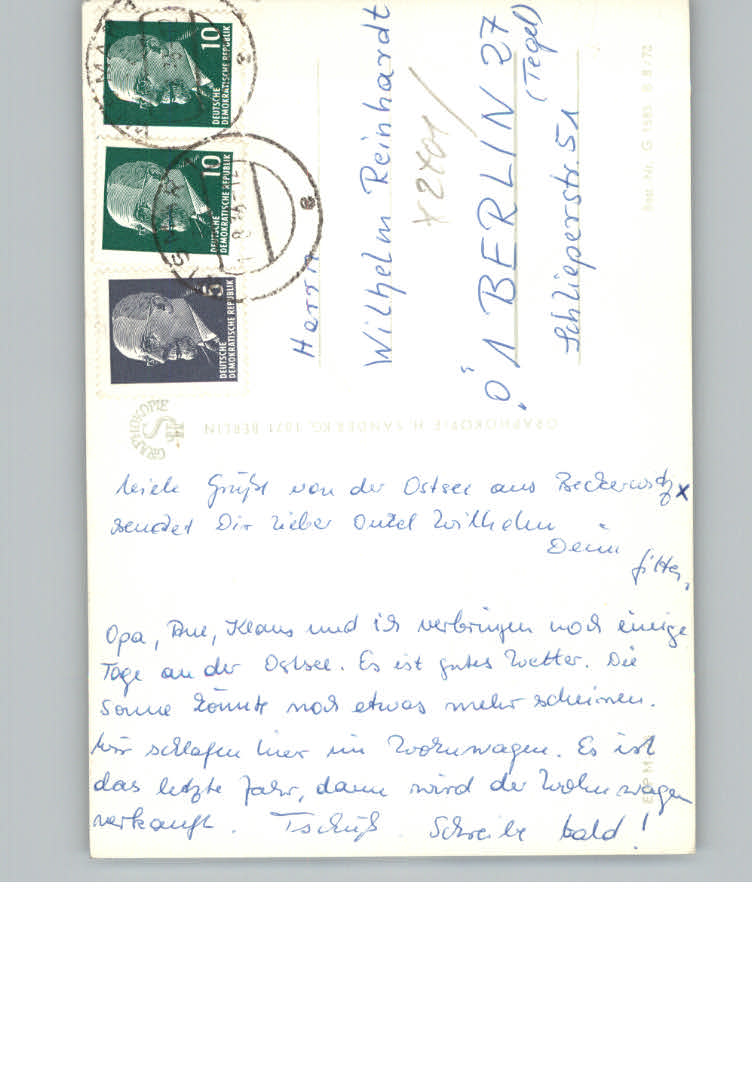 Viele Grüße von der Ostsee aus Beckerwitz
sendet Dir lieber Onkel Wilhelm
Deine
Opa, Klaus und ich verbringen noch einige
Tage an der Ostsee. Es ist gutes Wetter. Die
Sonne könnte noch etwas mehr scheinen.
Wir schlafen hier im Wohnwagen. Es ist
das letzte Jahr, dann wird der Wohnwagen
verkauft. Tschüß. Schreibe bald!
Herrn
Wilhelm Reinhardt
X2401/
"Ö"1 BERLIN 27
(Tegel)
Schlieperstr. 51
10
DEUTSCHE
DEMOKRATISCHE REPUBLIK
10
DEUTSCHE
DEMOKRATISCHE REPUBLIK
5
DEUTSCHE
DEMOKRATISCHE REPUBLIK
GRAPHOKOPIE
GRAPHOKOPIE H. SANDER KG, 1071 BERLIN